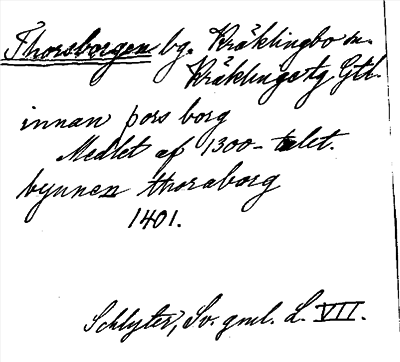 Thorsborgen bg. Kräklingbo sn.
Kräklinge tg Gtl.
innan þors borg
Medlet af 1300-talet.
bynnen thoraborg
1401.
Schlyter, Sv. gml. L. VII.